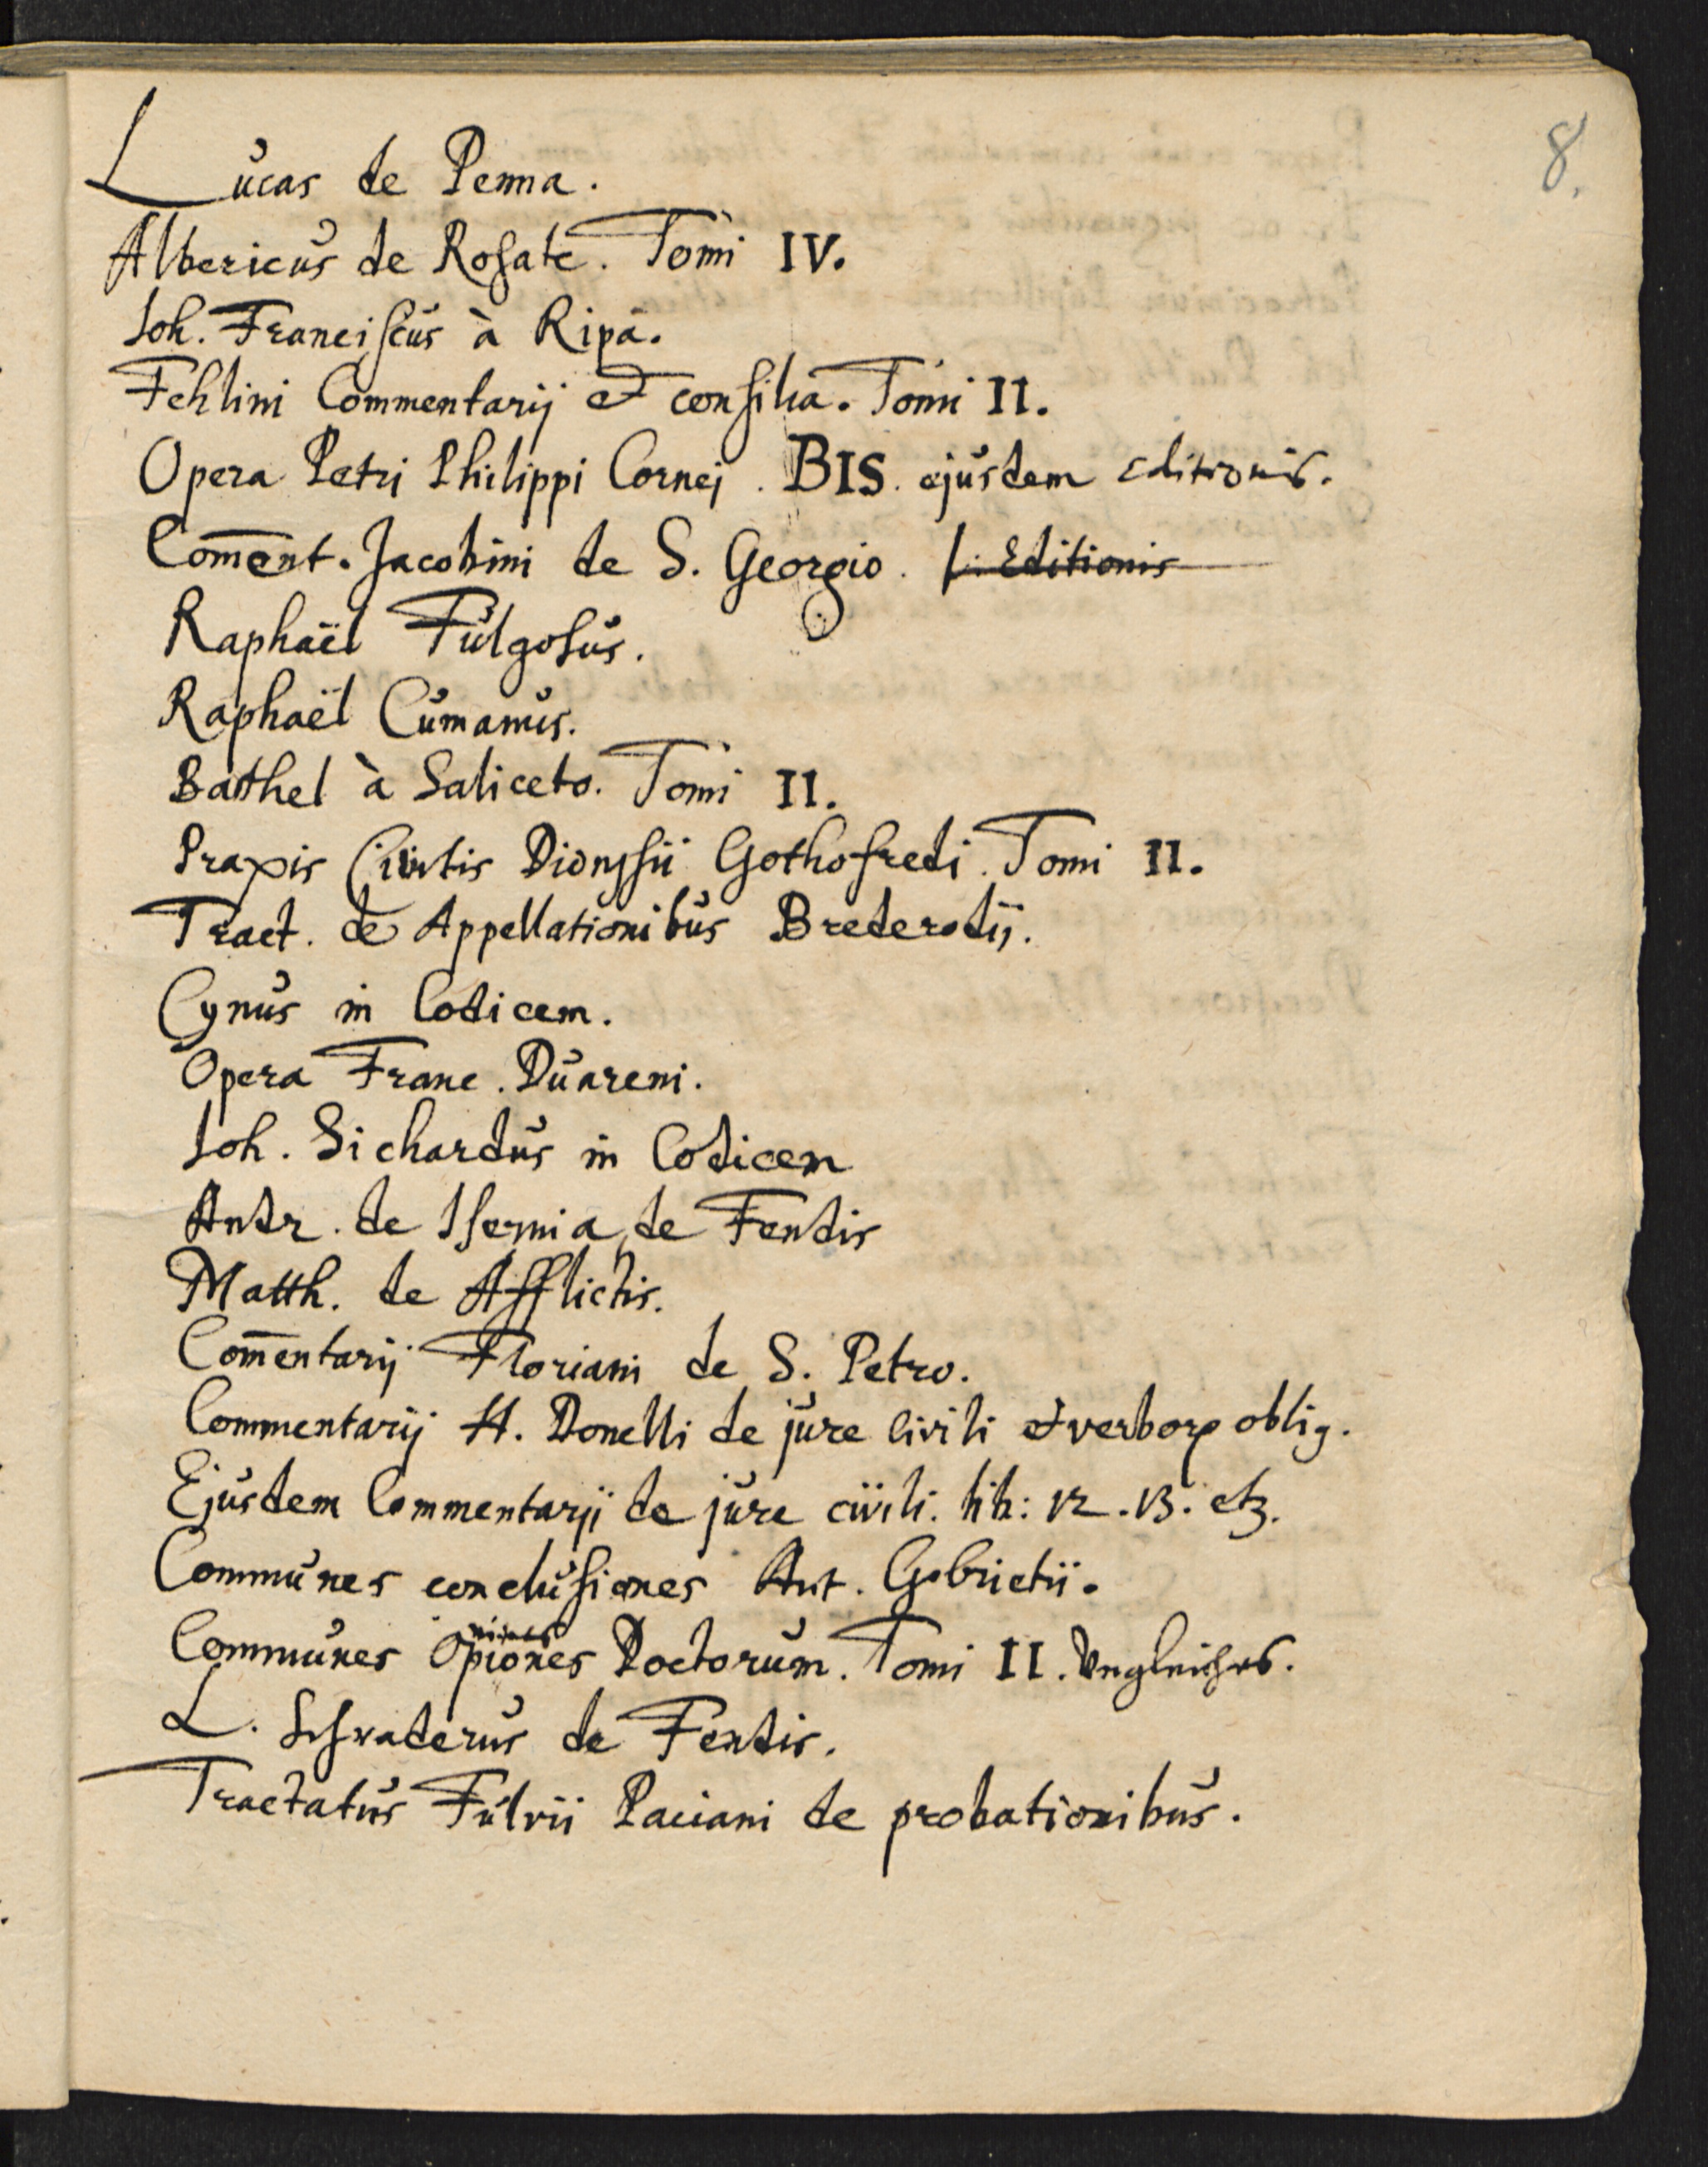 8.
Lucas de Penna.
Albericus de Rosate. Tomi IV.
Joh. Franciscus à Ripa.
Fehlini Commentarij et consilia. Tomi II.
Opera Petri Philippi Cornej. BIS. ejusdem Editionis.
Com̄ent. Jacobini de S. Georgio. Editionis
Raphaël Fulgosus.
Raphaël Cumanus.
Barthel à Saliceto. Tomi II.
Praxis Civilis Dionysii Gothofredi. Tomi II.
Tract. de Appellationibus Brederodij.
Cynus in Codicem.
Opera Franc. Duareni.
Joh. Sichardus in Codicem
Andr. de Isernia, de Feudis
Matth. de Afflictis.
Com̄entarij Floriani de S. Petro.
Commentarij H. Donelli de jure civili et verborꝝ oblig.
Ejusdem Commentarij de jure civili. lib: 12. 13. etz.
Communes conclusiones Ant. Gabrielii.
Communes Opiniones Doctorum. Tomi II. Ungleiches.
L. Schraderus de Feudis.
Tractatus Fulvii Paciani de probationibus.